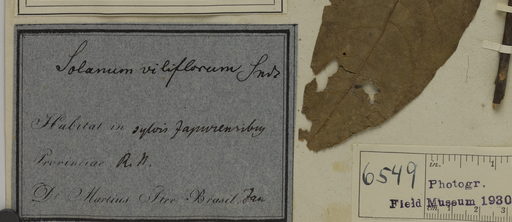 Solanum viliflorum Sndt
Habitat in sylvis Japurensibus
Provinciae R. N.
Dr Martius Iter Brasil. Jan
6549
in. 1
Photogr.
Field Museum 1930
cm. 1 2 3